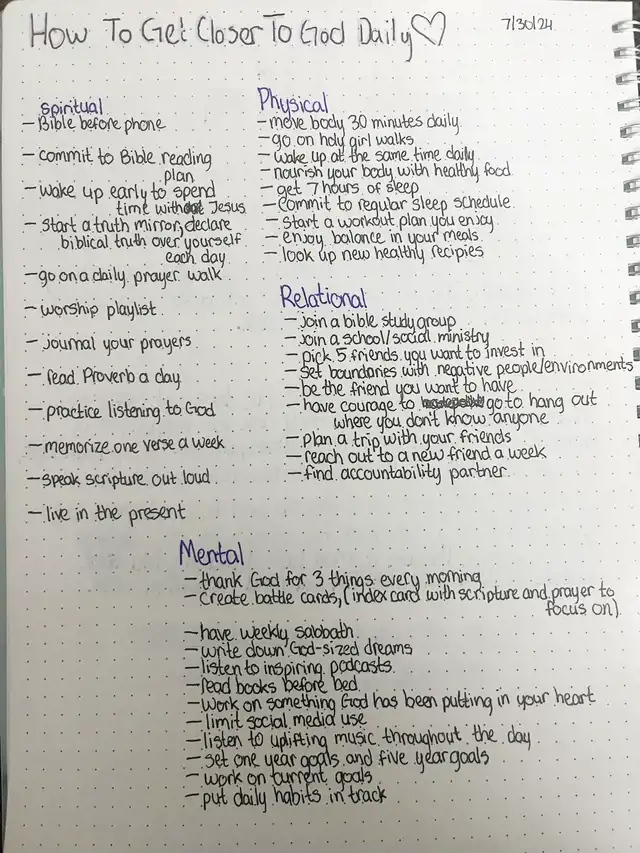 How To Get Closer To God Daily♡
7/30/24
spiritual
- Bible before phone
- commit to Bible reading
plan
- wake up early to spend
time with Jesus
- start a truth mirror, declare
biblical truth over yourself
each day
- go on a daily prayer walk
- worship playlist
- journal your prayers
- read Proverb a day
- practice listening to God
- memorize one verse a week
- speak scripture out loud
- live in the present
Physical
- move body 30 minutes daily
- go on holy girl walks
- wake up at the same time daily
- nourish your body with healthy food
- get 7 hours of sleep
- commit to regular sleep schedule
- start a workout plan you enjoy
- enjoy balance in your meals
- look up new healthy recipies
Relational
- join a bible study group
- join a school/social ministry
- pick 5 friends you want to invest in
- set boundaries with negative people/environments
- be the friend you want to have
- have courage to go to hang out
where you don't know anyone
- plan a trip with your friends
- reach out to a new friend a week
- find accountability partner
Mental
- thank God for 3 things every morning
- create battle cards, (index card with scripture and prayer to
focus on)
- have weekly sabbath
- write down God-sized dreams
- listen to inspiring podcasts
- read books before bed
- work on something God has been putting in your heart
- limit social media use
- listen to uplifting music throughout the day
- set one year goals and five year goals
- work on current goals
- put daily habits in track